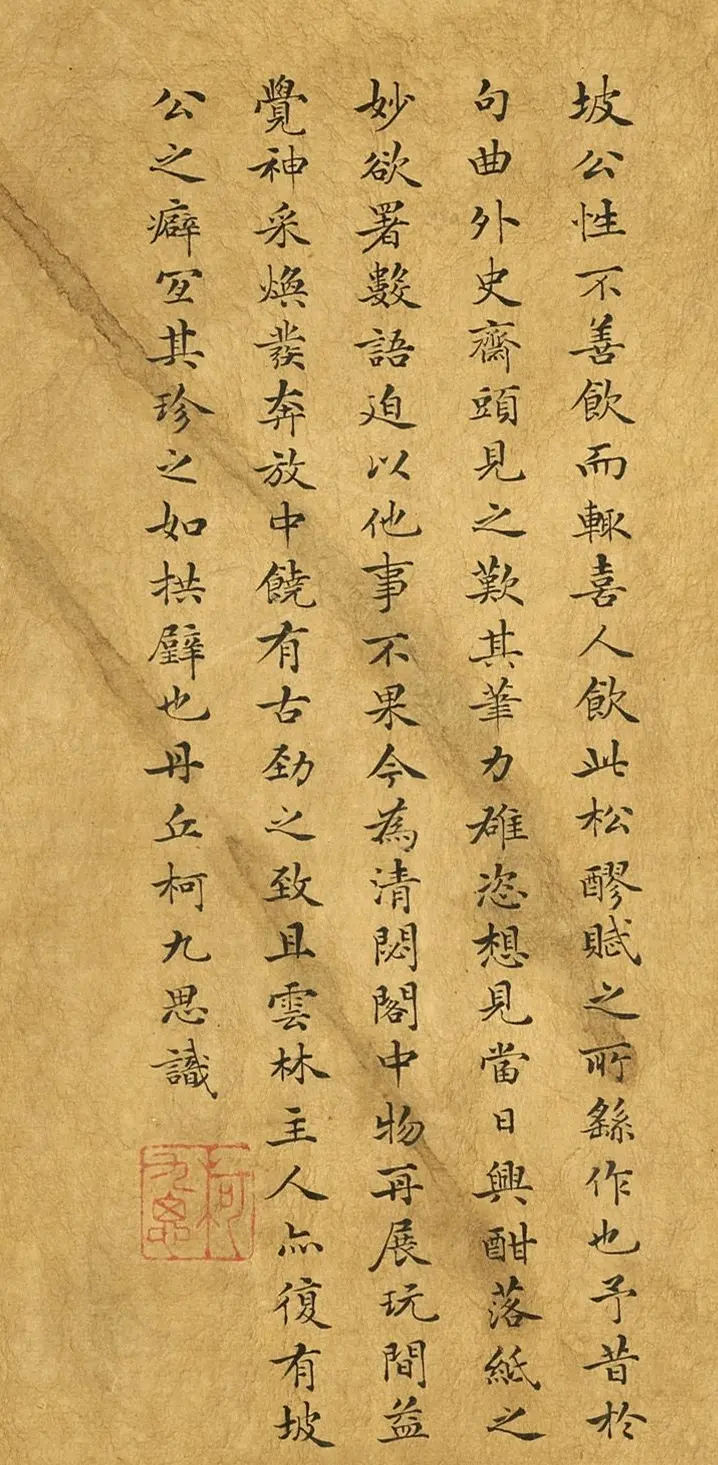 坡公性不善飲而輙喜人飲此松醪賦之所繇作也予昔於
句曲外史齋頭見之歎其筆力雄恣想見當日興酣落紙之
妙欲署數語迫以他事不果今為清閟閣中物再展玩間益
覺神采煥發奔放中饒有古勁之致且雲林主人亦復有坡
公之癖宜其珍之如拱璧也丹丘柯九思識
柯九思